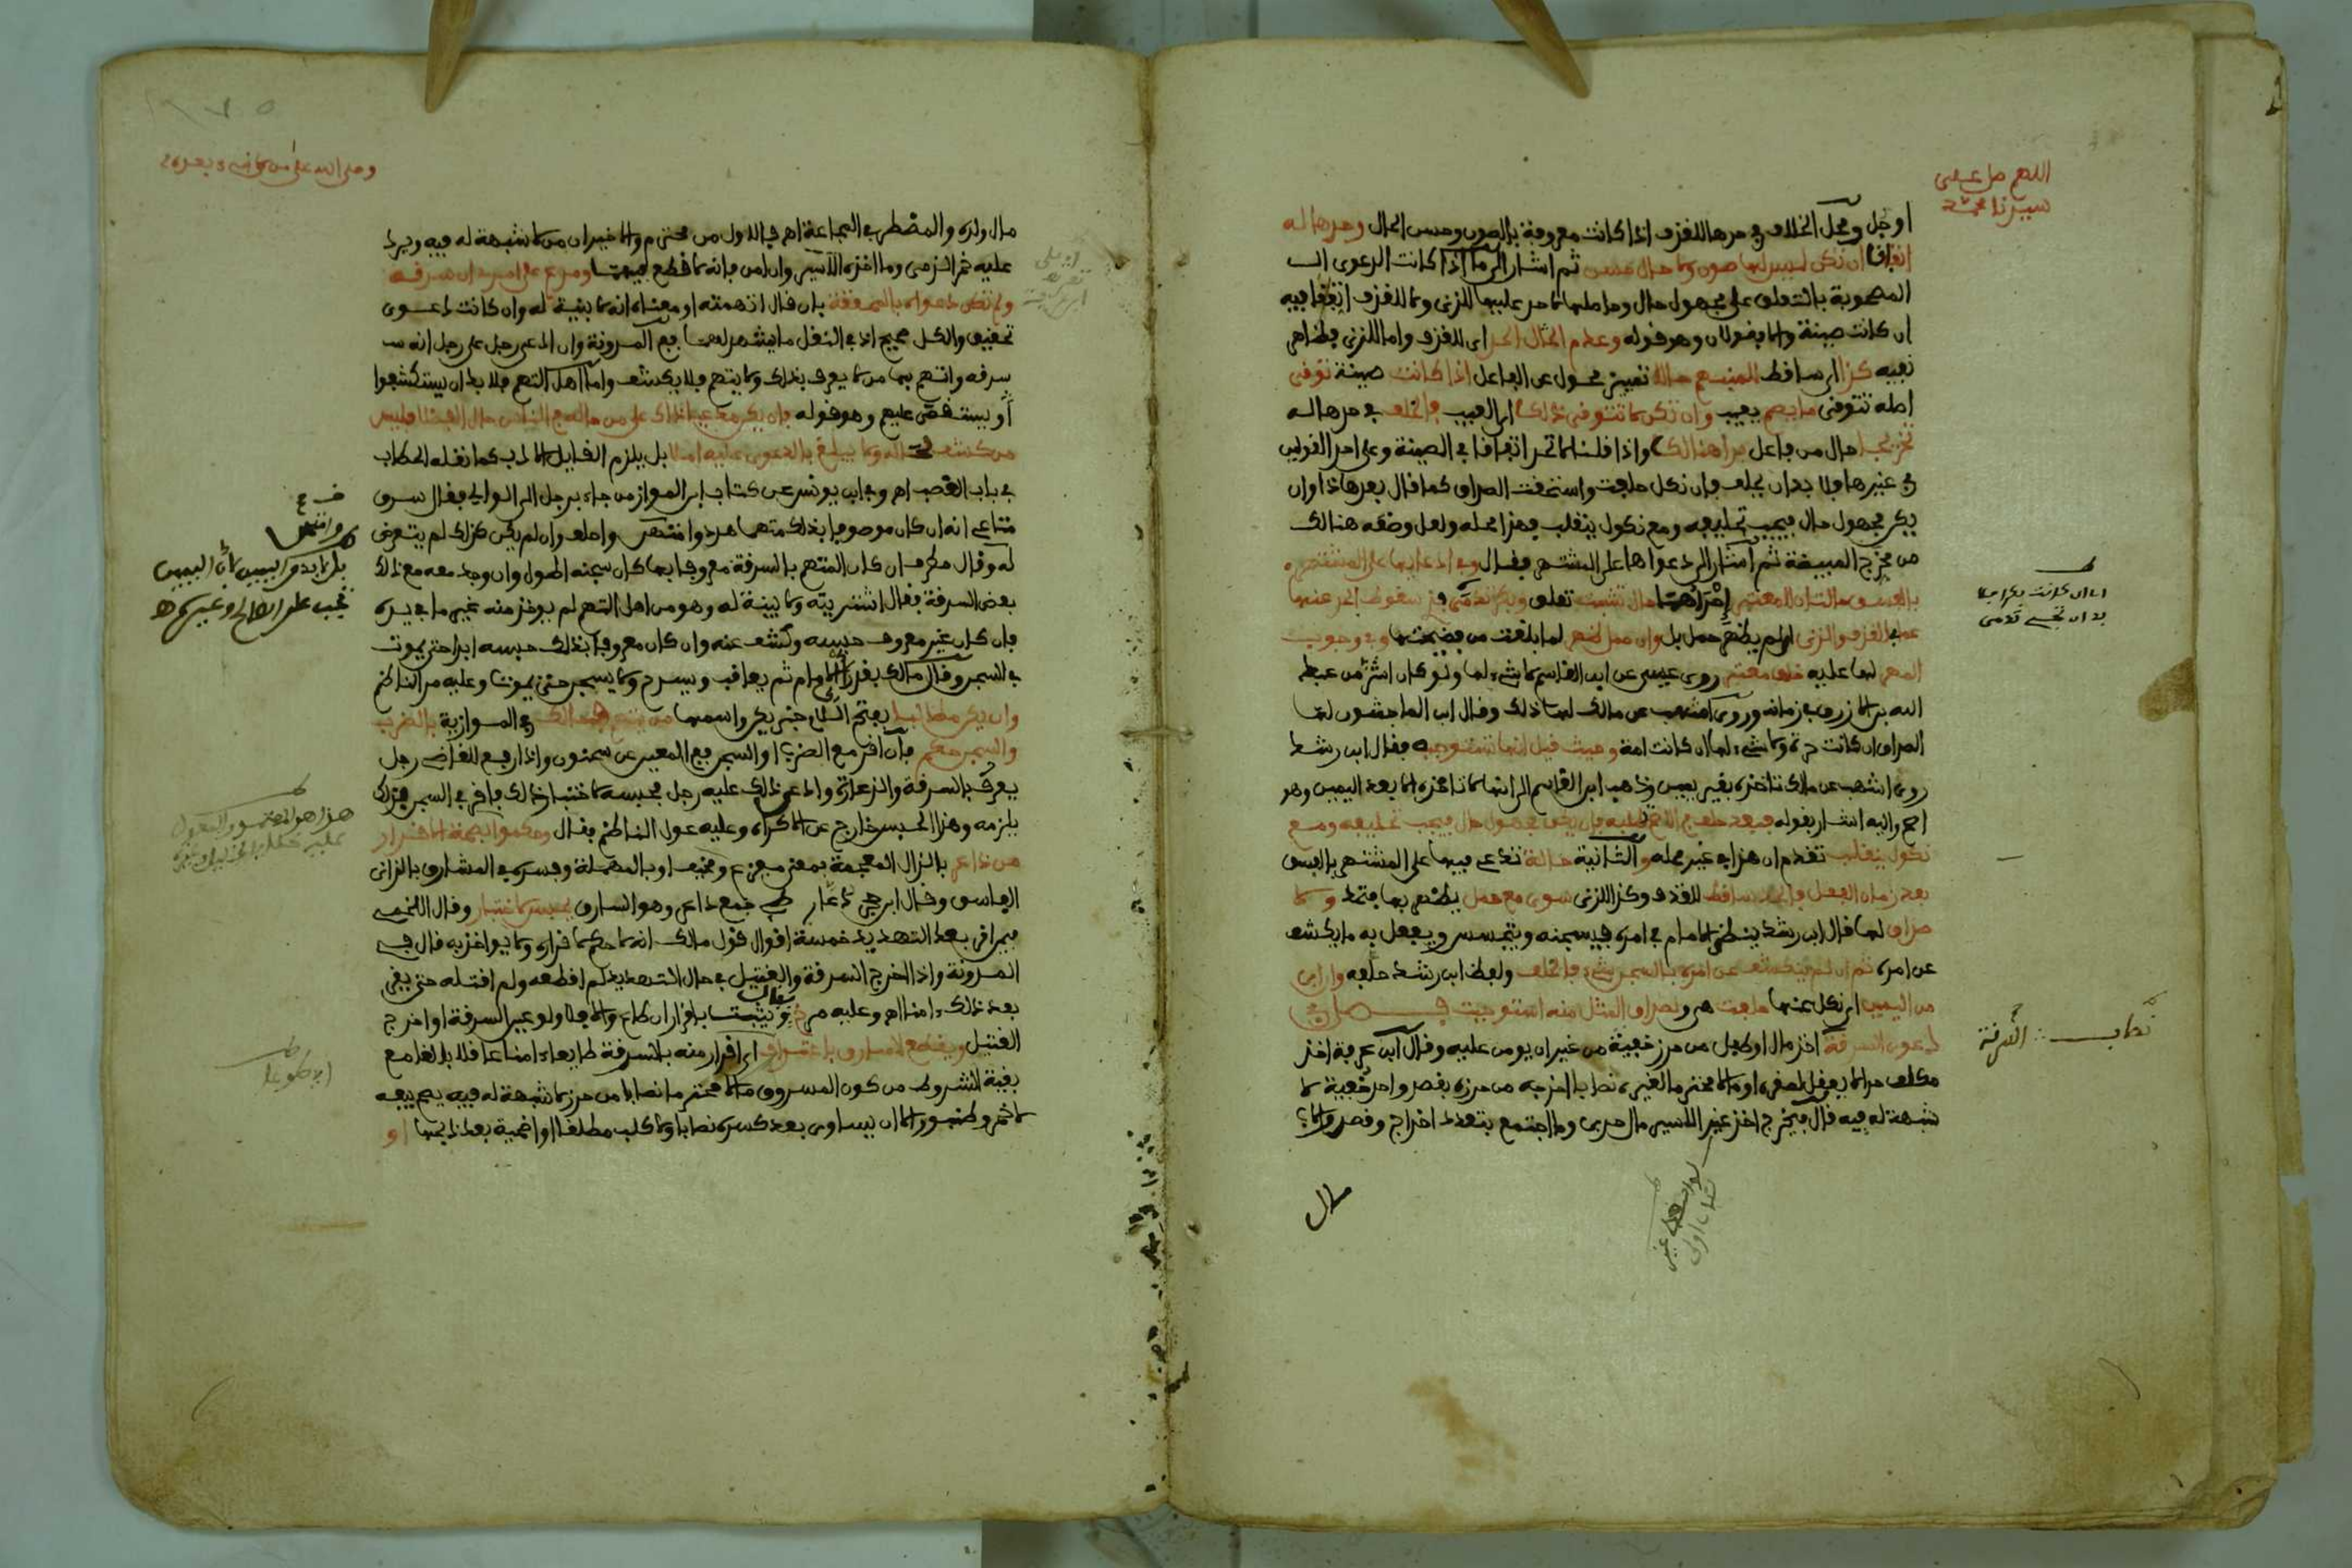 اللهم صل على
سيدنا محمد
او جل ومحل الخلاف في حدها للقذف اذا كانت معروفة بالصون وحسن الحال وحدها له
اتفاقا ان تكن ليس لها صون ولا حال حسن ثم اشار الى ما اذا كانت الدعوى
المصحوبة بالتعلق على مجهول حال وحاصلها لا حد عليها للزنى وللقذف اتفقا فيه
ان كانت صينة والا فقولان وهو قوله وعدم الحال الحد اى للقذف واما للزنى
ففيه كذا اى ساقط تمييز محول عن الفاعل اذا كانت صينة توقى
اصله تتوقى ما يصم يعيب وان تكن لا تتوقى ذلك اى العيب فالخلف في حدها له
تخريجا حال من فاعل بدا هنالك واذا قلنا لا تحد اتفاقا في الصينة وعلى احد القولين
في غيرها فلا بد ان يحلف فان نكل حلفت واستحقت الصداق كما قال بعد هذا وان
يكن مجهول حال فيجب تحليفه ومع نكول ينقلب فهذا محله ولعل وضعه هنالك
من مخرج المبيضة ثم اشار الى دعواها على المشتهر فقال وفي ادعائها على المشتهر
بالفسق حالتان للمعتبر احداهما حال تشبث تعلق
اى لم يظهر حمل بل وان حمل ظهر لما بلغت من فضيحتها وفي وجوب
المهر لها عليه خلف معتبر روى عيسى عن ابن القاسم لا شيء لها ولو كان اشر من عبد
الله بن الازرق في زمانه وروى اشهب عن مالك لها ذلك وقال ابن الماجشون لها
الصداق ان كانت حرة ولا شيء لها ان كانت امة وحيث قيل انها تستوجبه فقال ابن رشد
روى اشهب عن مالك تاخذه بغير يمين وذهب ابن القاسم الى انها لا تاخذه الا بعد اليمين وهو
اصح واليه اشار بقوله فبعد حلف في الاصح
نكول ينقلب تقدم ان هذا في غير محله والثانية حالة تدعى فيها على المشتهر بالفسق
بعد زمان الفعل فالحد ساقط للقذف وكذا للزنى سوى مع حمل يظهر بها فتحد ولا
صداق لها قال ابن رشد ينظر الامام في امره فيسجنه ويتجسس ويفعل به ما يكشف
عن امره ثم ان لم ينكشف عن امره بالسجن شيء فالحلف ولفظ ابن رشد حلفه وان ابى
من اليمين اى نكل عنها حلفت هي وصداق المثل منه استوجبت فصل في
دعوى السرقة اخذ مال او طفل من حرز خفية من غير ان يومن عليه وقال ابن عرفة اخذ
مكلف حرا لا يعقل لصغره او مالا محترما لغيره نصابا اخرجه من حرزه بقصد واحد خفية لا
شبهة له فيه قال فيخرج اخذ غير الاسير مال حربى وما اجتمع بتعدد اخراج وقصد والاب
كتاب السرقة
مال
وصلى الله على من لا نبيء بعده
مال ولده والمضطر في المجاعة اهـ فبالاول من محترم والاخيران من لا شبهة له فيه ويرد
عليه خمر الذمى وما اخذه الاسير وان امن فانه لا قطع فيهما ومدع على امرئ ان سرقه
ولم تكن دعواه بالمحققه بان قال اتهمته او معناه انه لا بينة له وان كانت دعوى
تحقيق والكل صحيح اذ في النقل ما يشهد لهما ففي المدونة وان ادعى رجل على رجل انه
سرقه واتهم بها من لا يعرف بذلك ولا يتهم فلا يكشف واما اهل التهم فلا بد ان يستكشفوا
او يستقصى عليهم وهو قوله فان يكن مدعيا ذاك على من حاله في الناس حال الفضلا فليس
من كشف لحاله ولا يبلغ بالدعوى عليه املا بل يلزم القايل الادب كما نقله الحطاب
في باب الغصب اهـ وفي ابن يونس عن كتاب ابن المواز من جاء برجل الى الوالى فقال سرق
متاعى انه ان كان موصوفا بذلك متهما هدد وامتحن واحلف وان لم يكن كذلك لم يتعرض
له وقال مطرف ان كان المتهم بالسرقة معروفا بها كان سجنه اطول وان وجد معه مع ذلك
بعض السرقة فقال اشتريته ولا بينة له وهو من اهل التهم لم يوخذ منه غير ما في يده
فان كان غير معروف حبسه وكشف عنه وان كان معروفا بذلك حبسه ابدا حتى يموت
في السجن وقال مالك بقدر راى الامام ثم يعاقب ويسرح ولا يسجن حتى يموت وعليه مر الناظم
وان يكن مطالبا بفتح اللام خبر يكن واسمها من يتهم فمالك في الموازية بالضرب
والسجن حكم فان اقر مع الضرب او السجن ففي المعين عن سحنون واذا رفع للقاضى رجل
يعرف بالسرقة والذعارة وادعى ذلك عليه رجل فحبسه لاختبار ذلك فاقر في السجن فذلك
يلزمه وهذا الحبس خارج عن الاكراه وعليه عول الناظم فقال وحكموا بصحة الاقرار
من ذاعر بالذال المعجمة بمعنى مفزع ومخيف او بالمهملة وفسره في المشارق بالزانى
الفاسق وقال ابن حجر ذعار جمع داعر وهو السارق يحبس لاختبار وقال اللخمى
فيمن اقر بعد التهديد خمسة اقوال قول مالك انه لا حكم لاقراره ولا يواخذ به قال في
المدونة واذا اخرج السرقة والقتيل في حال التهديد لم اقطعه ولم اقتله حتى يقر
بعد ذلك امنا اهـ وعليه مر خ فقال وثبتت باقرار ان طاع والا فلا ولو عين السرقة او اخرج
القتيل ويقطع السارق باعتراف اى اقرار منه بالسرقة طايعا امنا عاقلا بالغا مع
بقية الشروط من كون المسروق مالا محترما نصابا من حرز لا شبهة له فيه يصح بيعه
لا خمر وطنبور الا ان يساوى بعد كسره نصابا ولا كلب مطلقا او اضحية بعد ذبحها او